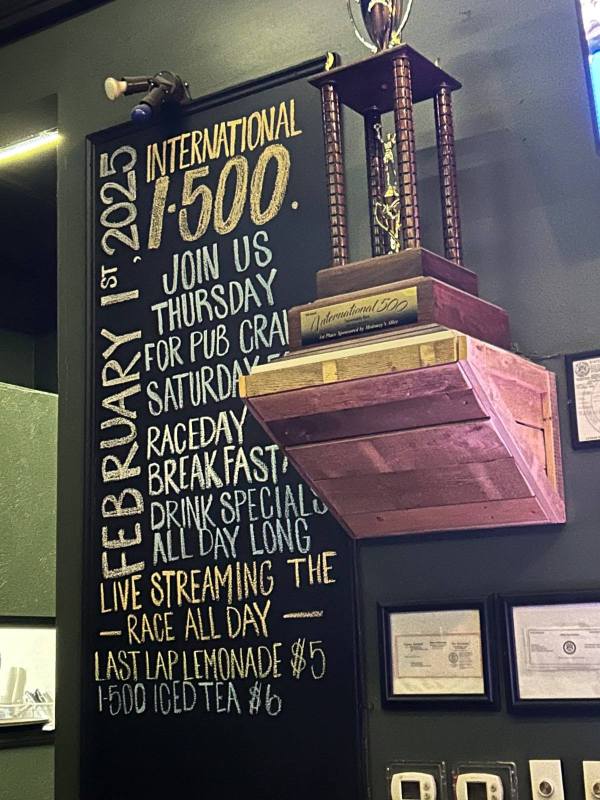 FEBRUARY 1ST, 2025
INTERNATIONAL
I-500.
JOIN US
THURSDAY
FOR PUB
SATURDAY
RACEDAY
BREAKFAST
DRINK SPECIALS
ALL DAY LONG
LIVE STREAMING THE
— RACE ALL DAY —
LAST LAP LEMONADE $5
I-500 ICED TEA $6
International 500
1st Place Sponsored by Moloney's Alley